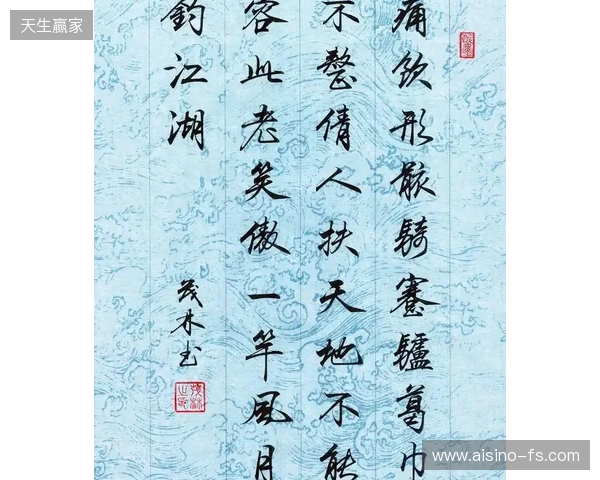 天生赢家
痛飲形骸騎蹇驢葛巾
不整倩人扶天地不能
容此老笑傲一竿風月
釣江湖
茂林书
www.aisino-fs.com